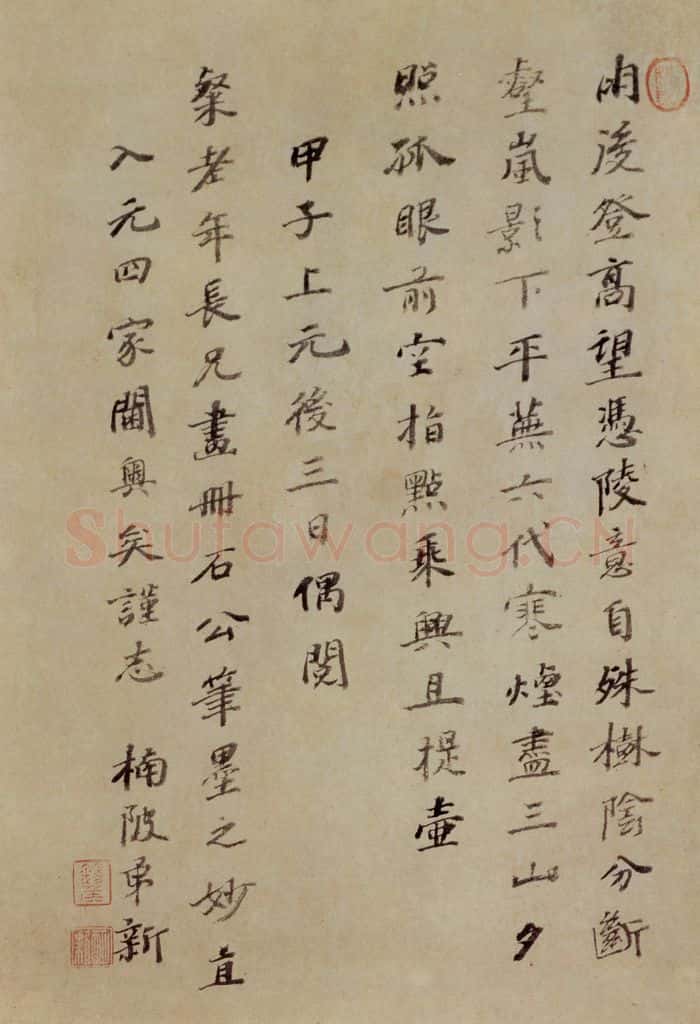 明浚登高望憑陵意自殊樹陰分斷
壑嵐影下平蕪六代寒煙盡三山夕
照孤眼前空指點乘興且提壺
甲子上元後三日偶閱
粲老年長兄畫冊石公筆墨之妙直
入元四家閫奧矣謹志 楠陂弟新
Shufawang.CN